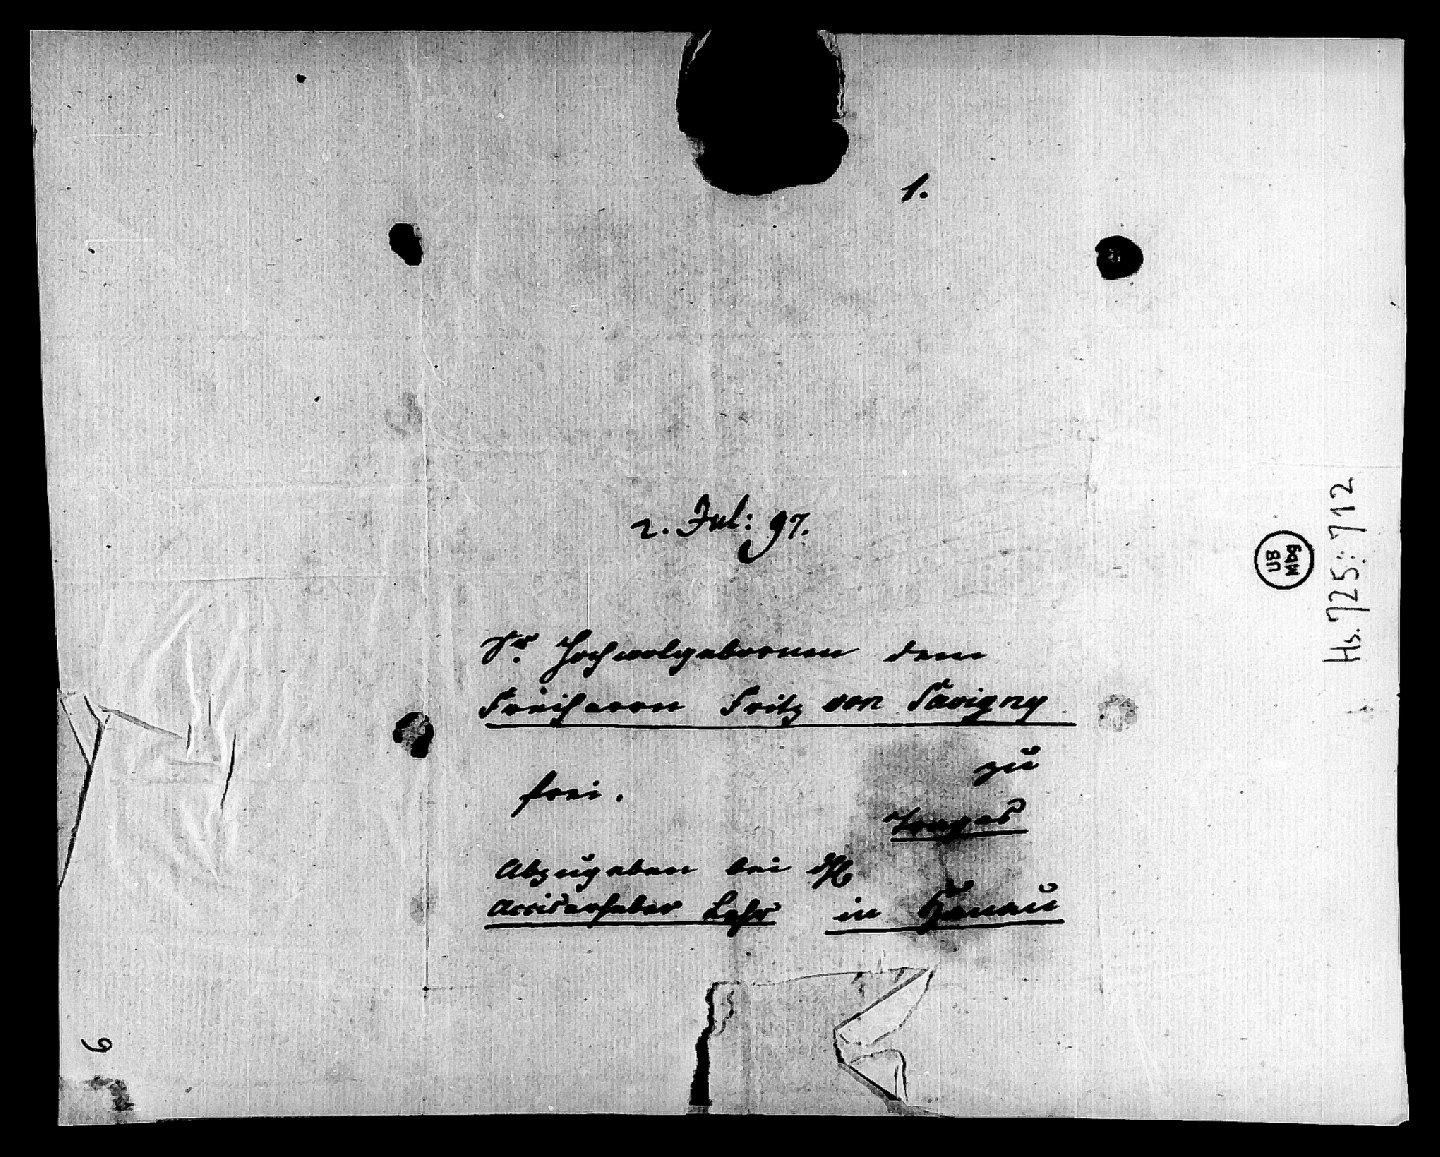 1.
2. Jul: 97.
Sr. Hochwolgebornen dem
Freiherrn Fritz von Savigny
zu
frei.
Trages
Abzugeben bei H
Acciserheber Lehr in Hanau
Hs. 725: 712
UB
MBG
6